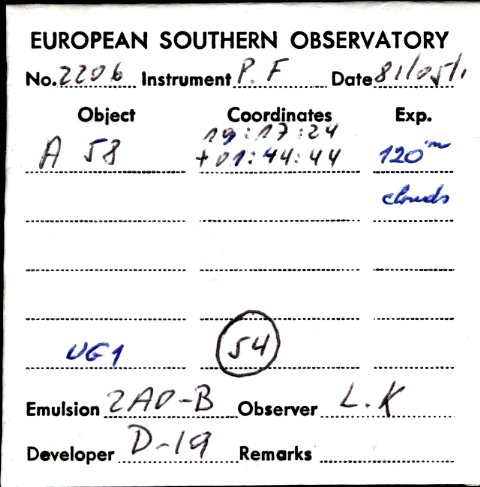 EUROPEAN SOUTHERN OBSERVATORY
No. 2206 Instrument P. F Date 81/05/1
Object Coordinates Exp.
19:17:24
A 58 +01:44:44 120m
clouds
UG1 54
Emulsion 2AO-B Observer L.K
Developer D-19 Remarks